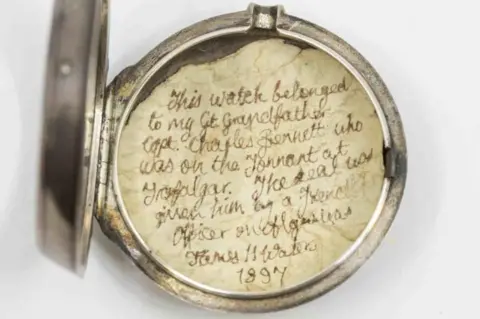 This watch belonged
to my Gt Grandfather
Capt. Charles Bennett who
was on the Tonnant at
Trafalgar. The seal was
given him by a French
Officer on
James H
1897